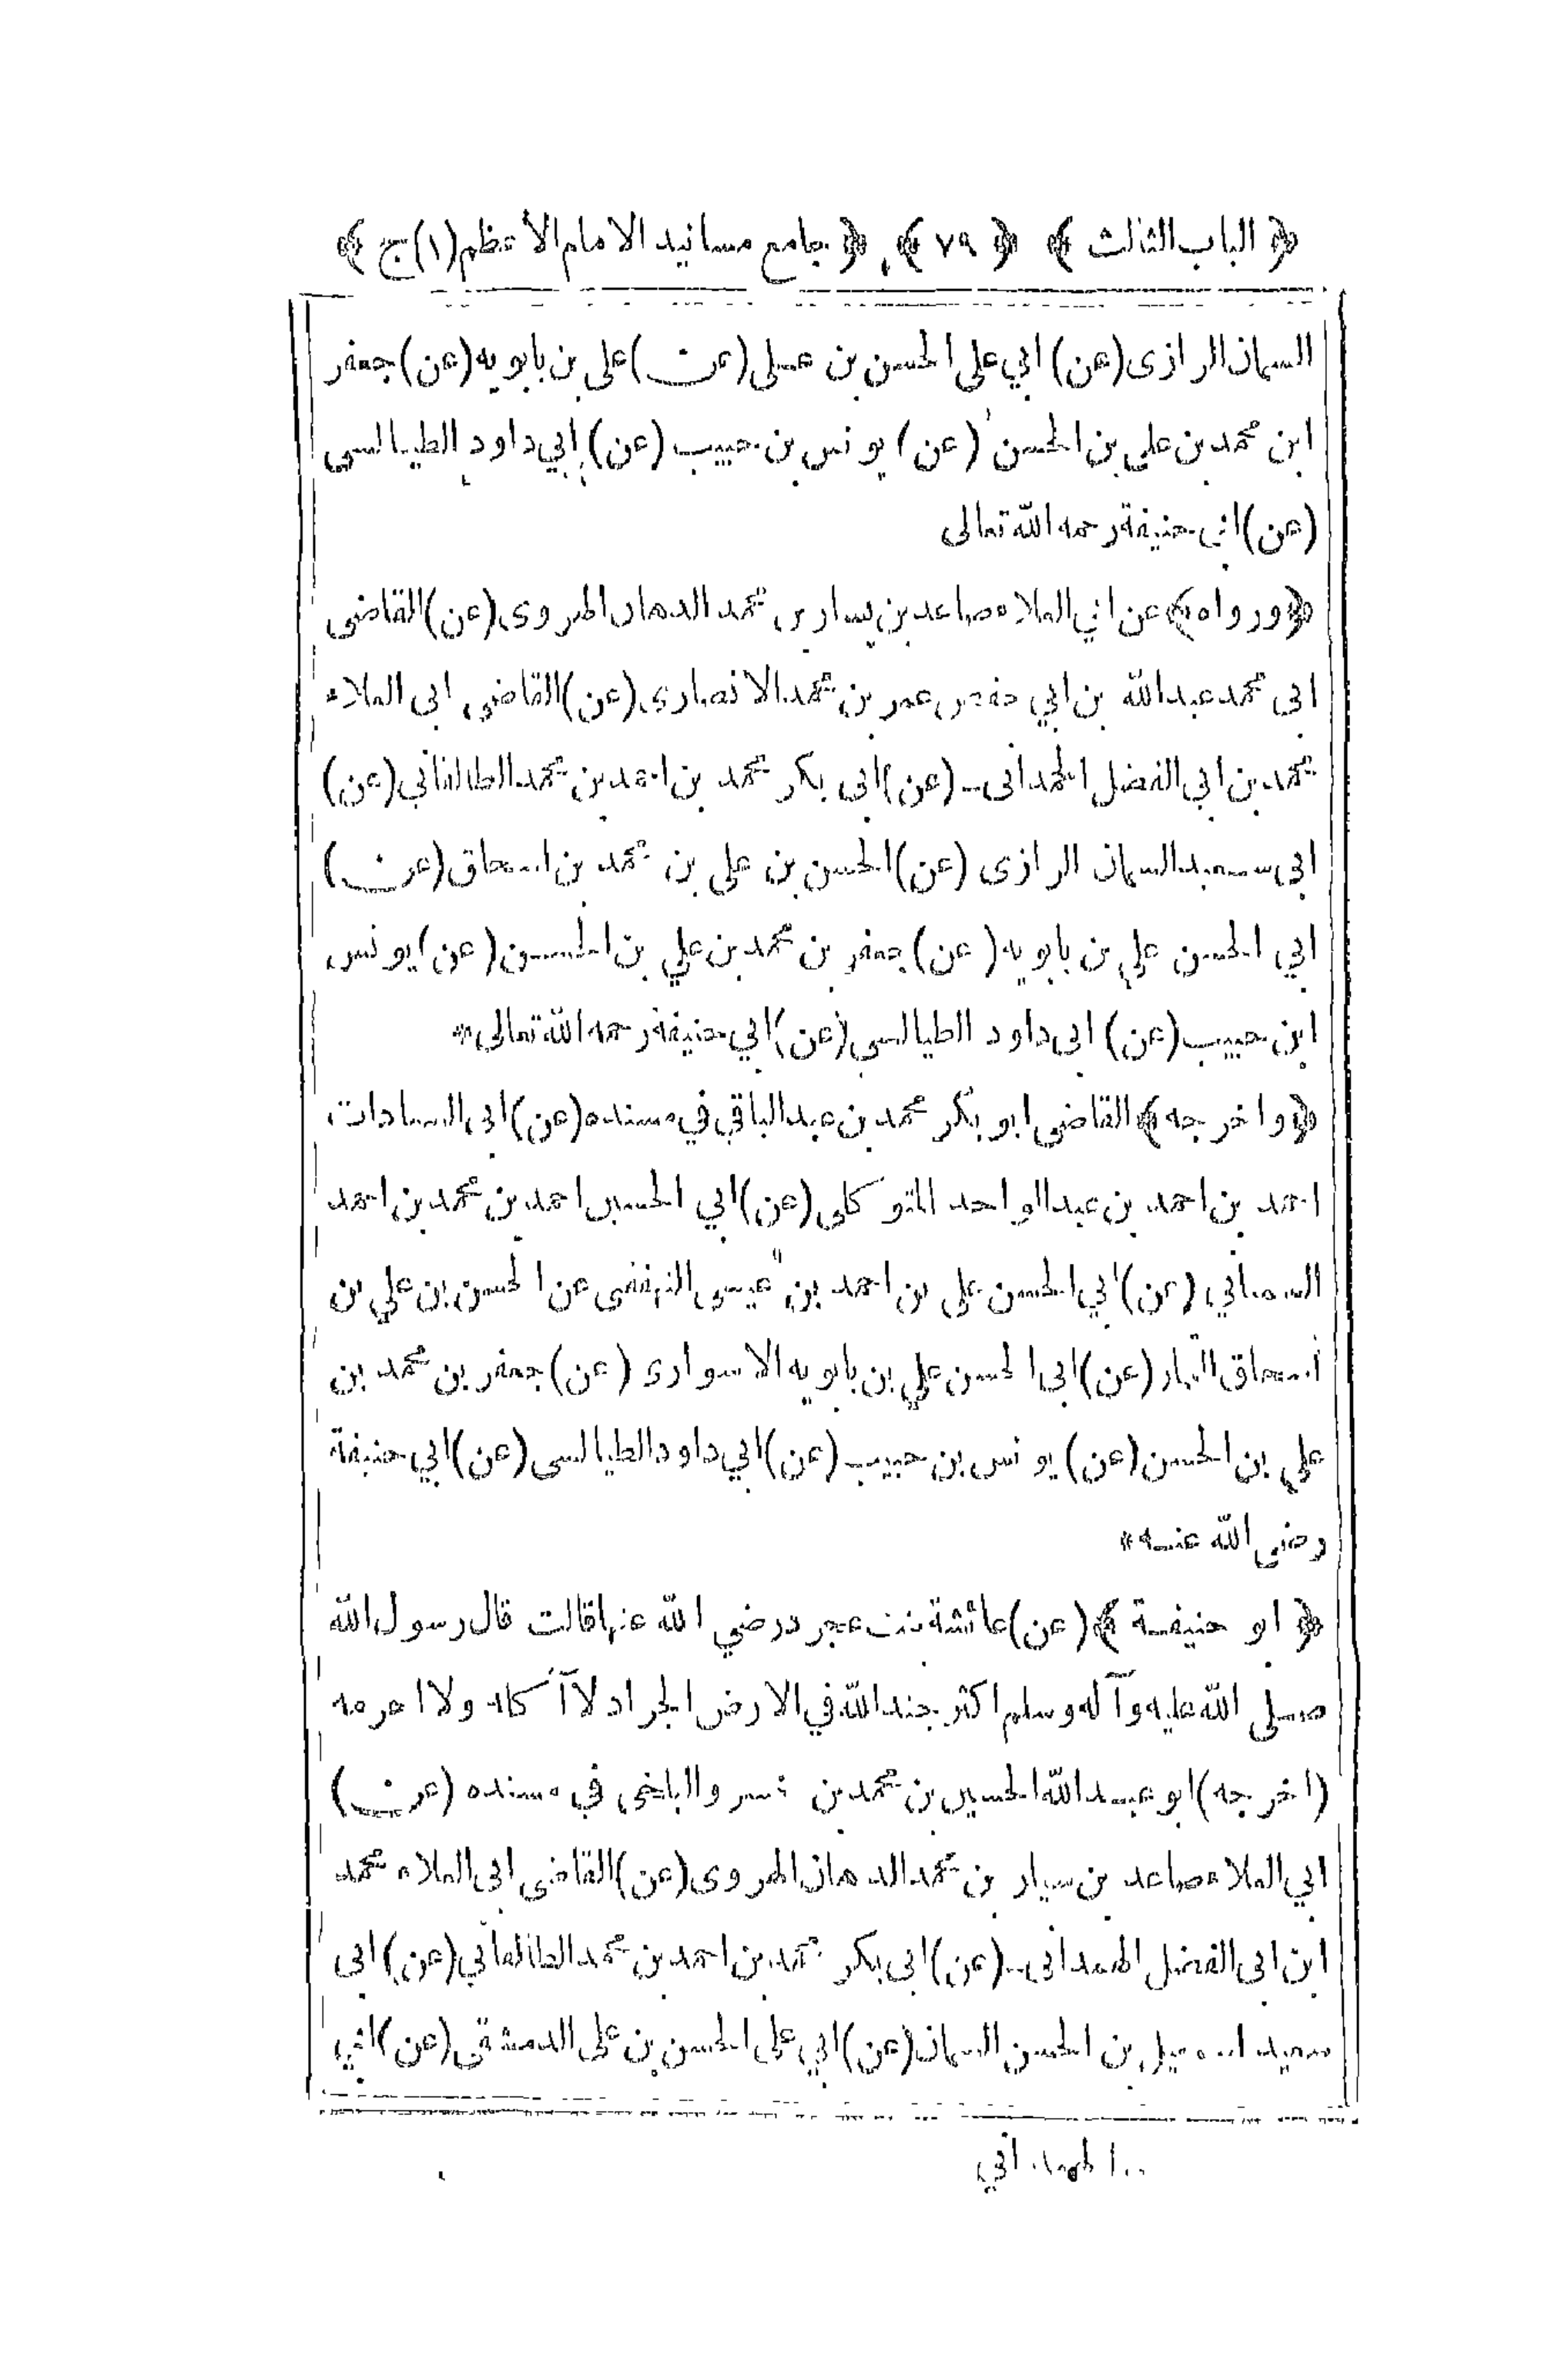 ﴿ الباب الثالث ﴾ ﴿ ٧٩ ﴾ ﴿ جامع مسانيد الامام الأعظم (١) ج ﴾
السمان الرازى (عن) ابي على الحسن بن عـلى (عن) على بن بابويه (عن) جعفر
ابن محمد بن على بن الحسن (عن) يونس بن حبيب (عن) ابي داود الطيالسى
(عن) ابى حنيفة رحمه الله تعالى
﴿ ورواه ﴾ عن ابي العلاء صاعد بن يسار بن محمد الدهان الهروى (عن) القاضى
ابى محمد عبد الله بن ابي حفص عمر بن محمد الانصارى (عن) القاضى ابى العلاء
محمد بن ابى الفضل الحمدانى (عن) ابى بكر محمد بن احمد بن محمد الطالقاني (عن)
ابى سـعيد السمان الرازى (عن) الحسن بن على بن محمد بن اسحاق (عن)
ابي الحسن علي بن بابويه (عن) جعفر بن محمد بن علي بن الحسـن (عن) يونس
ابن حبيب (عن) ابى داود الطيالسى (عن) ابي حنيفة رحمه الله تعالى *
﴿ واخرجه ﴾ القاضى ابو بكر محمد بن عبد الباقي في مسنده (عن) ابى السعادات
احمد بن احمد بن عبد الواحد المتوكلى (عن) ابي الحسين احمد بن محمد بن احمد
(عن) ابي الحسن على بن احمد بن عيسى عن الحسن بن علي بن
اسـحاق (عن) ابى الحسن علي بن بابويه الاسوارى (عن) جعفر بن محمد بن
علي بن الحسن (عن) يونس بن حبيب (عن) ابي داود الطيالسى (عن) ابي حنيفة
رضى الله عنـه *
﴿ ابو حنيفـة ﴾ (عن) عائشة بنت عجرد رضي الله عنها قالت قال رسول الله
صـلى الله عليه وآله وسلم اكثر جند الله في الارض الجراد لا آكله ولا احرمه
(اخرجه) ابو عبـد الله الحسين بن محمد بن خسرو البلخى فى مسنده (عن)
ابي العلاء صاعد بن سيار بن محمد الدهان الهروى (عن) القاضى ابى العلاء محمد
ابن ابى الفضل الهمدانى (عن) ابى بكر محمد بن احمد بن محمد الطالقاني (عن) ابى
سعيد اسمعيل بن الحسن السمان (عن) ابي على الحسن بن على الدمشقي (عن) ابي